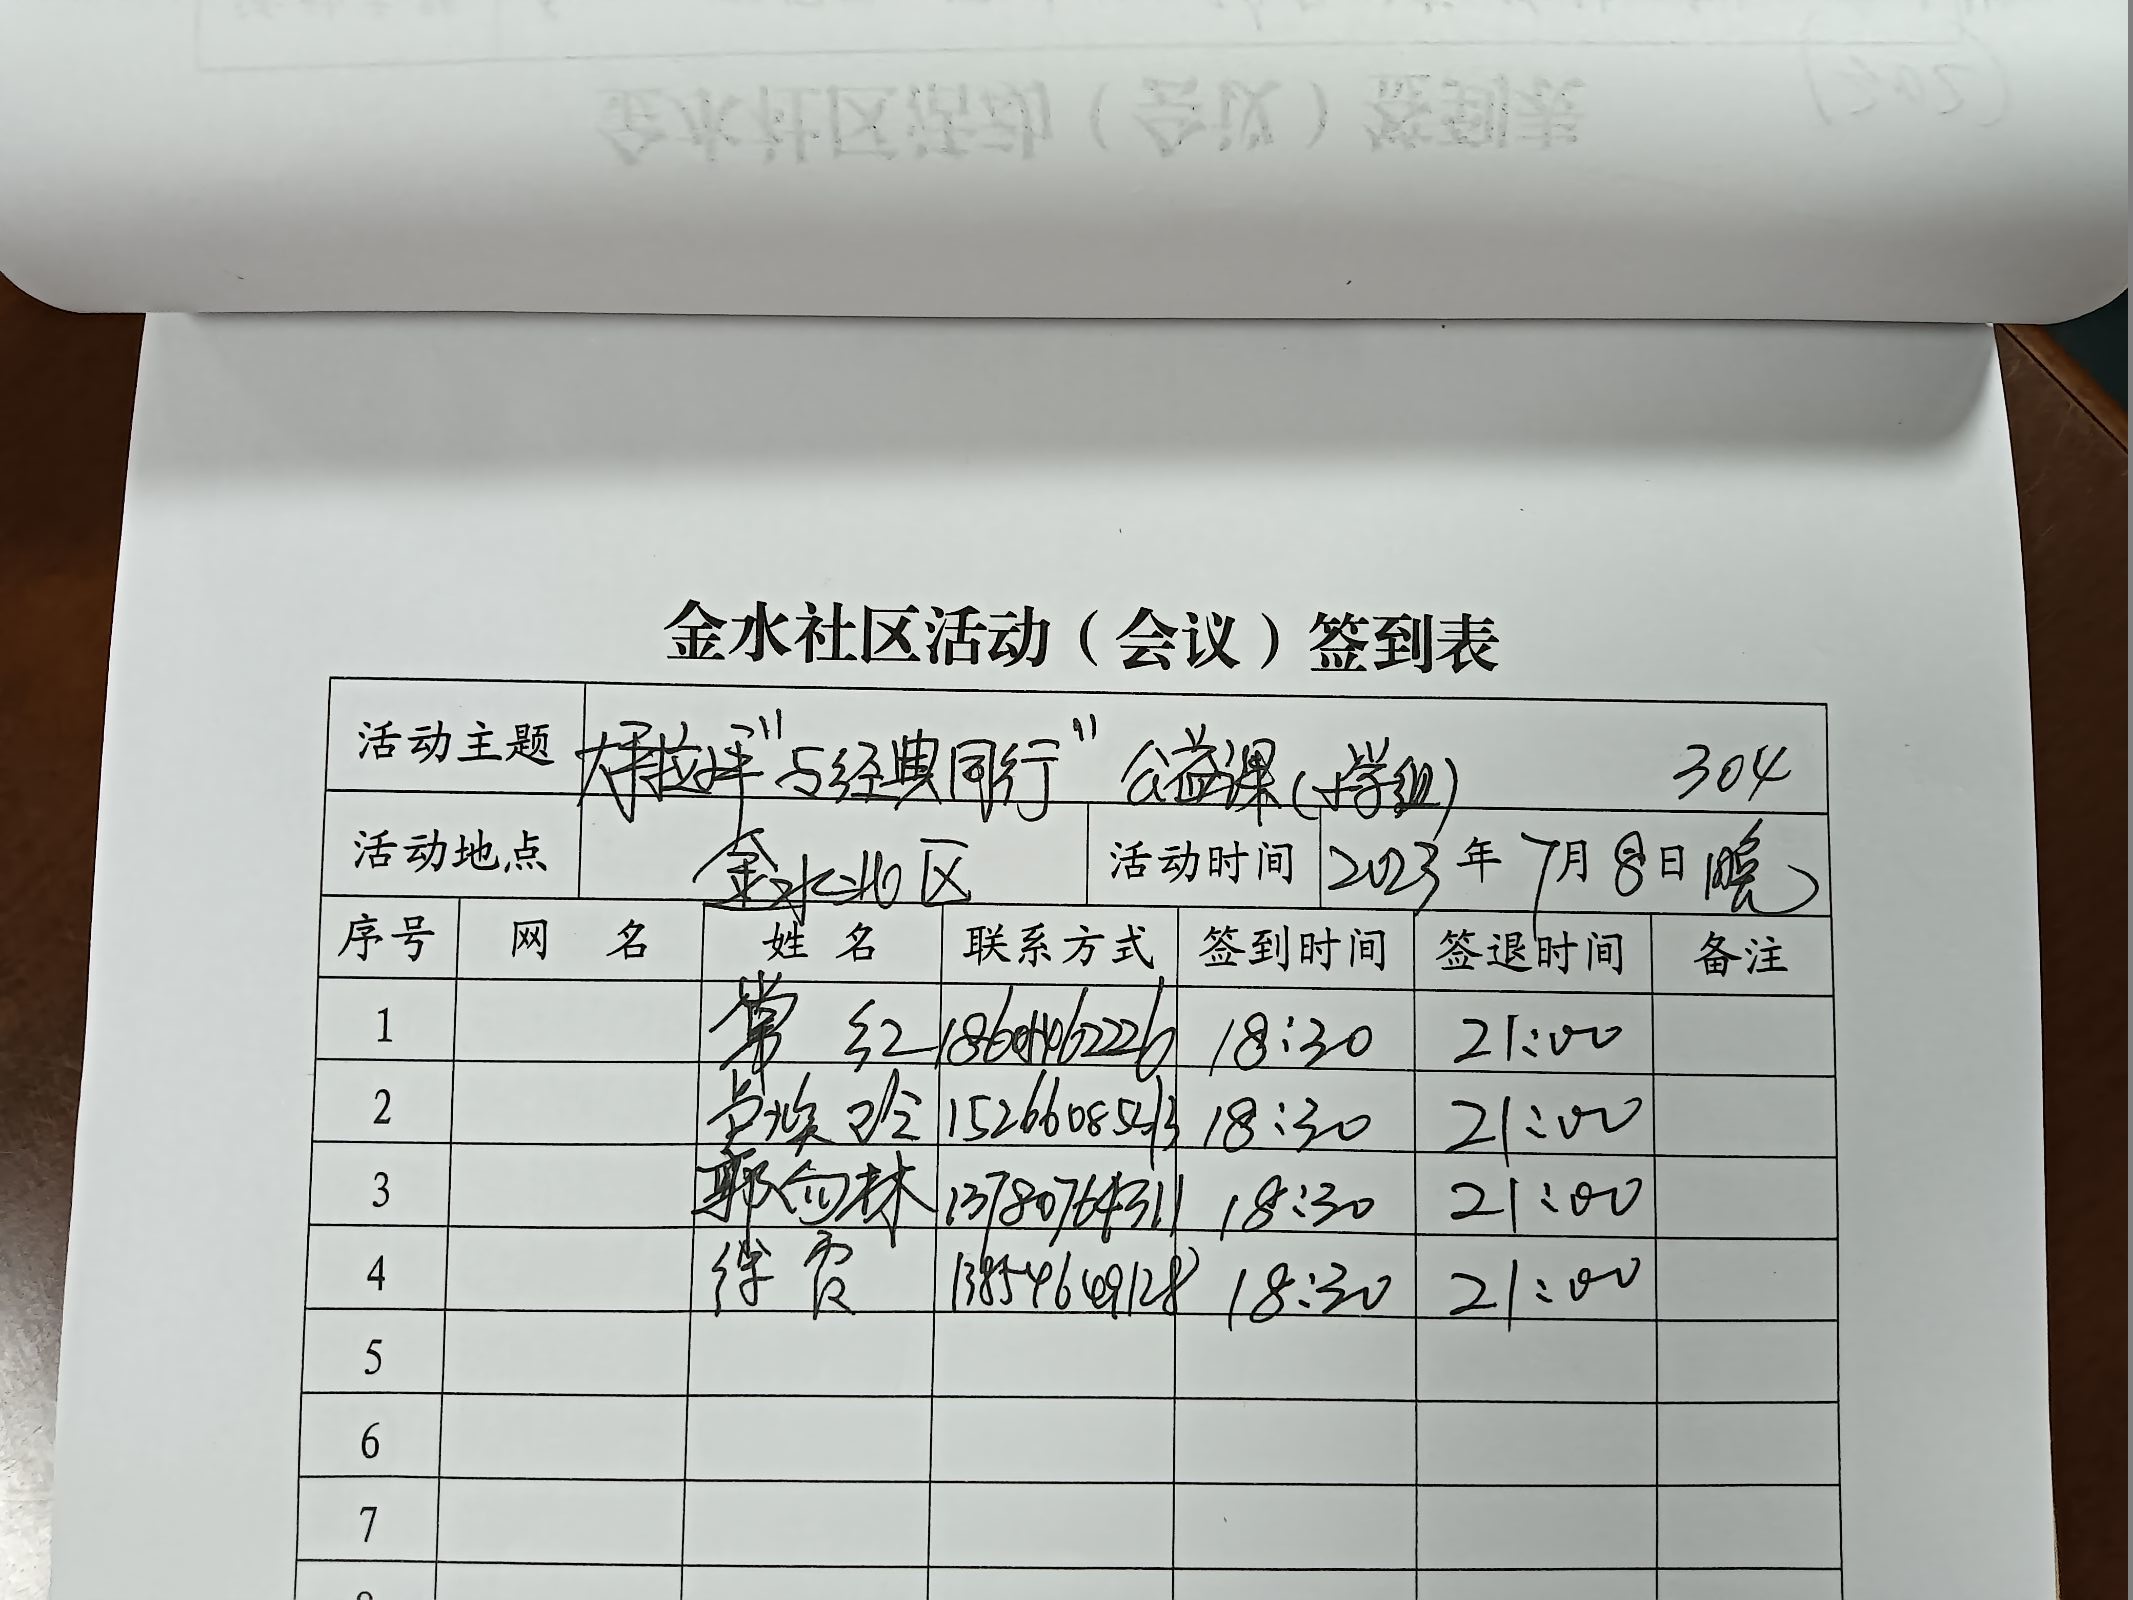 金水社区活动（会议）签到表
活动主题 大手拉小手"与经典同行"公益课(小学组) 304
活动地点 金水北区 活动时间 2023年7月8日晚
序号 网名 姓名 联系方式 签到时间 签退时间 备注
1 常红 18:30 21:00
2 18:30 21:00
3 13780764311 18:30 21:00
4 徐霞 13854649128 18:30 21:00
5
6
7